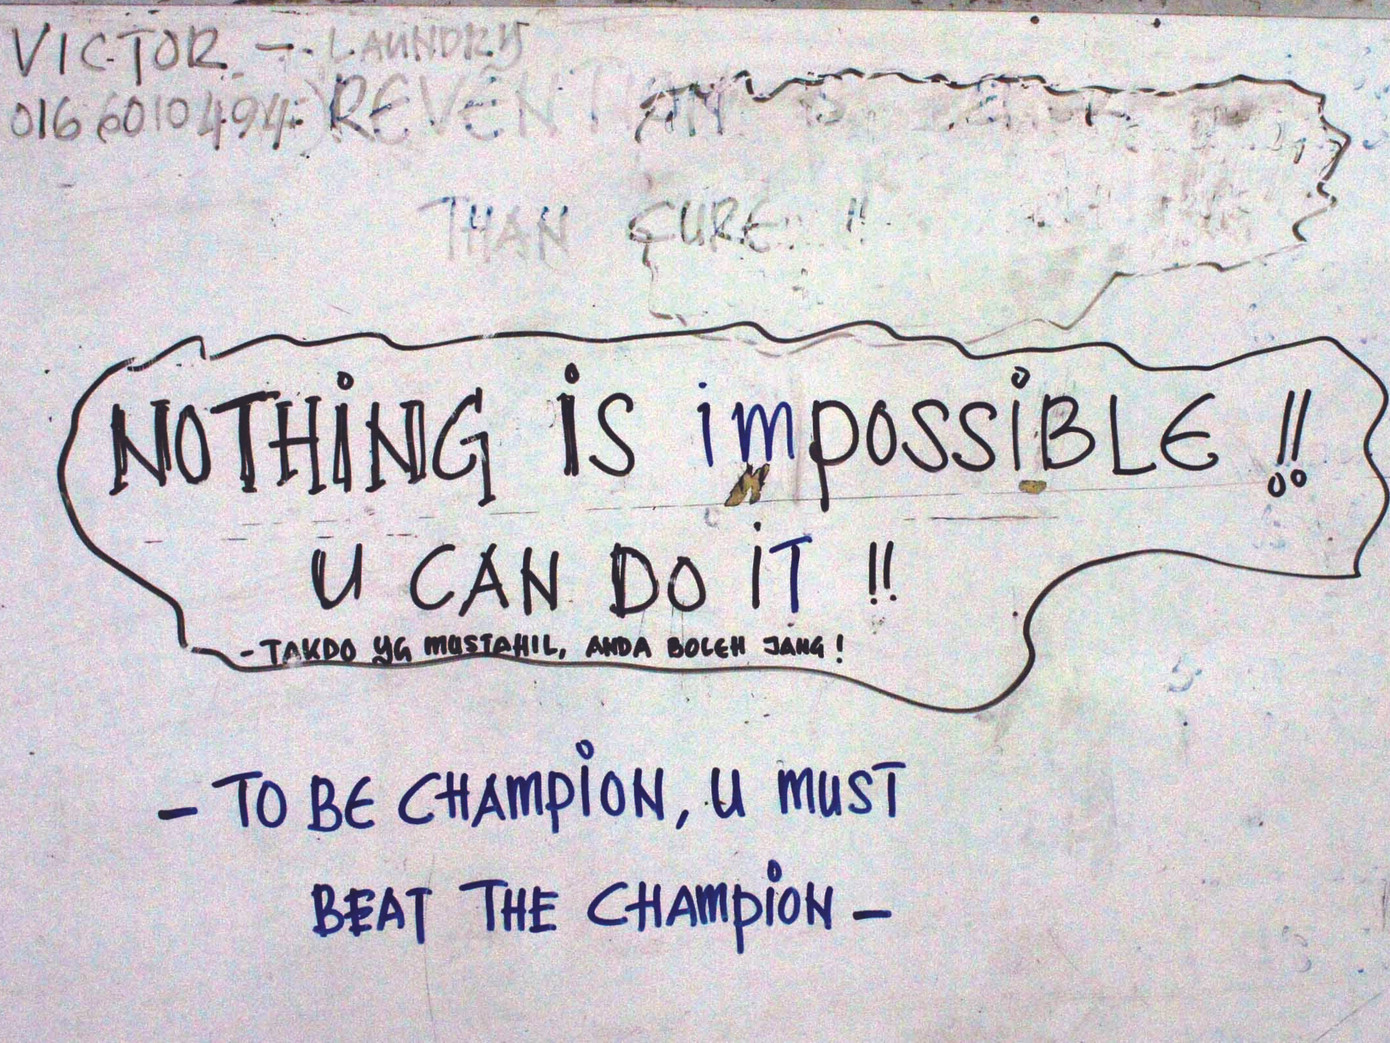 VICTOR - LAUNDRY
016 6010494 REVENTION IS
THAN CURE !!
NOTHING IS impOSSIBLE !!
U CAN DO IT !!
- TAKDO YG MUSTAHIL, ANDA BOLEH JANG !
- TO BE CHAMPION, U MUST
BEAT THE CHAMPION -